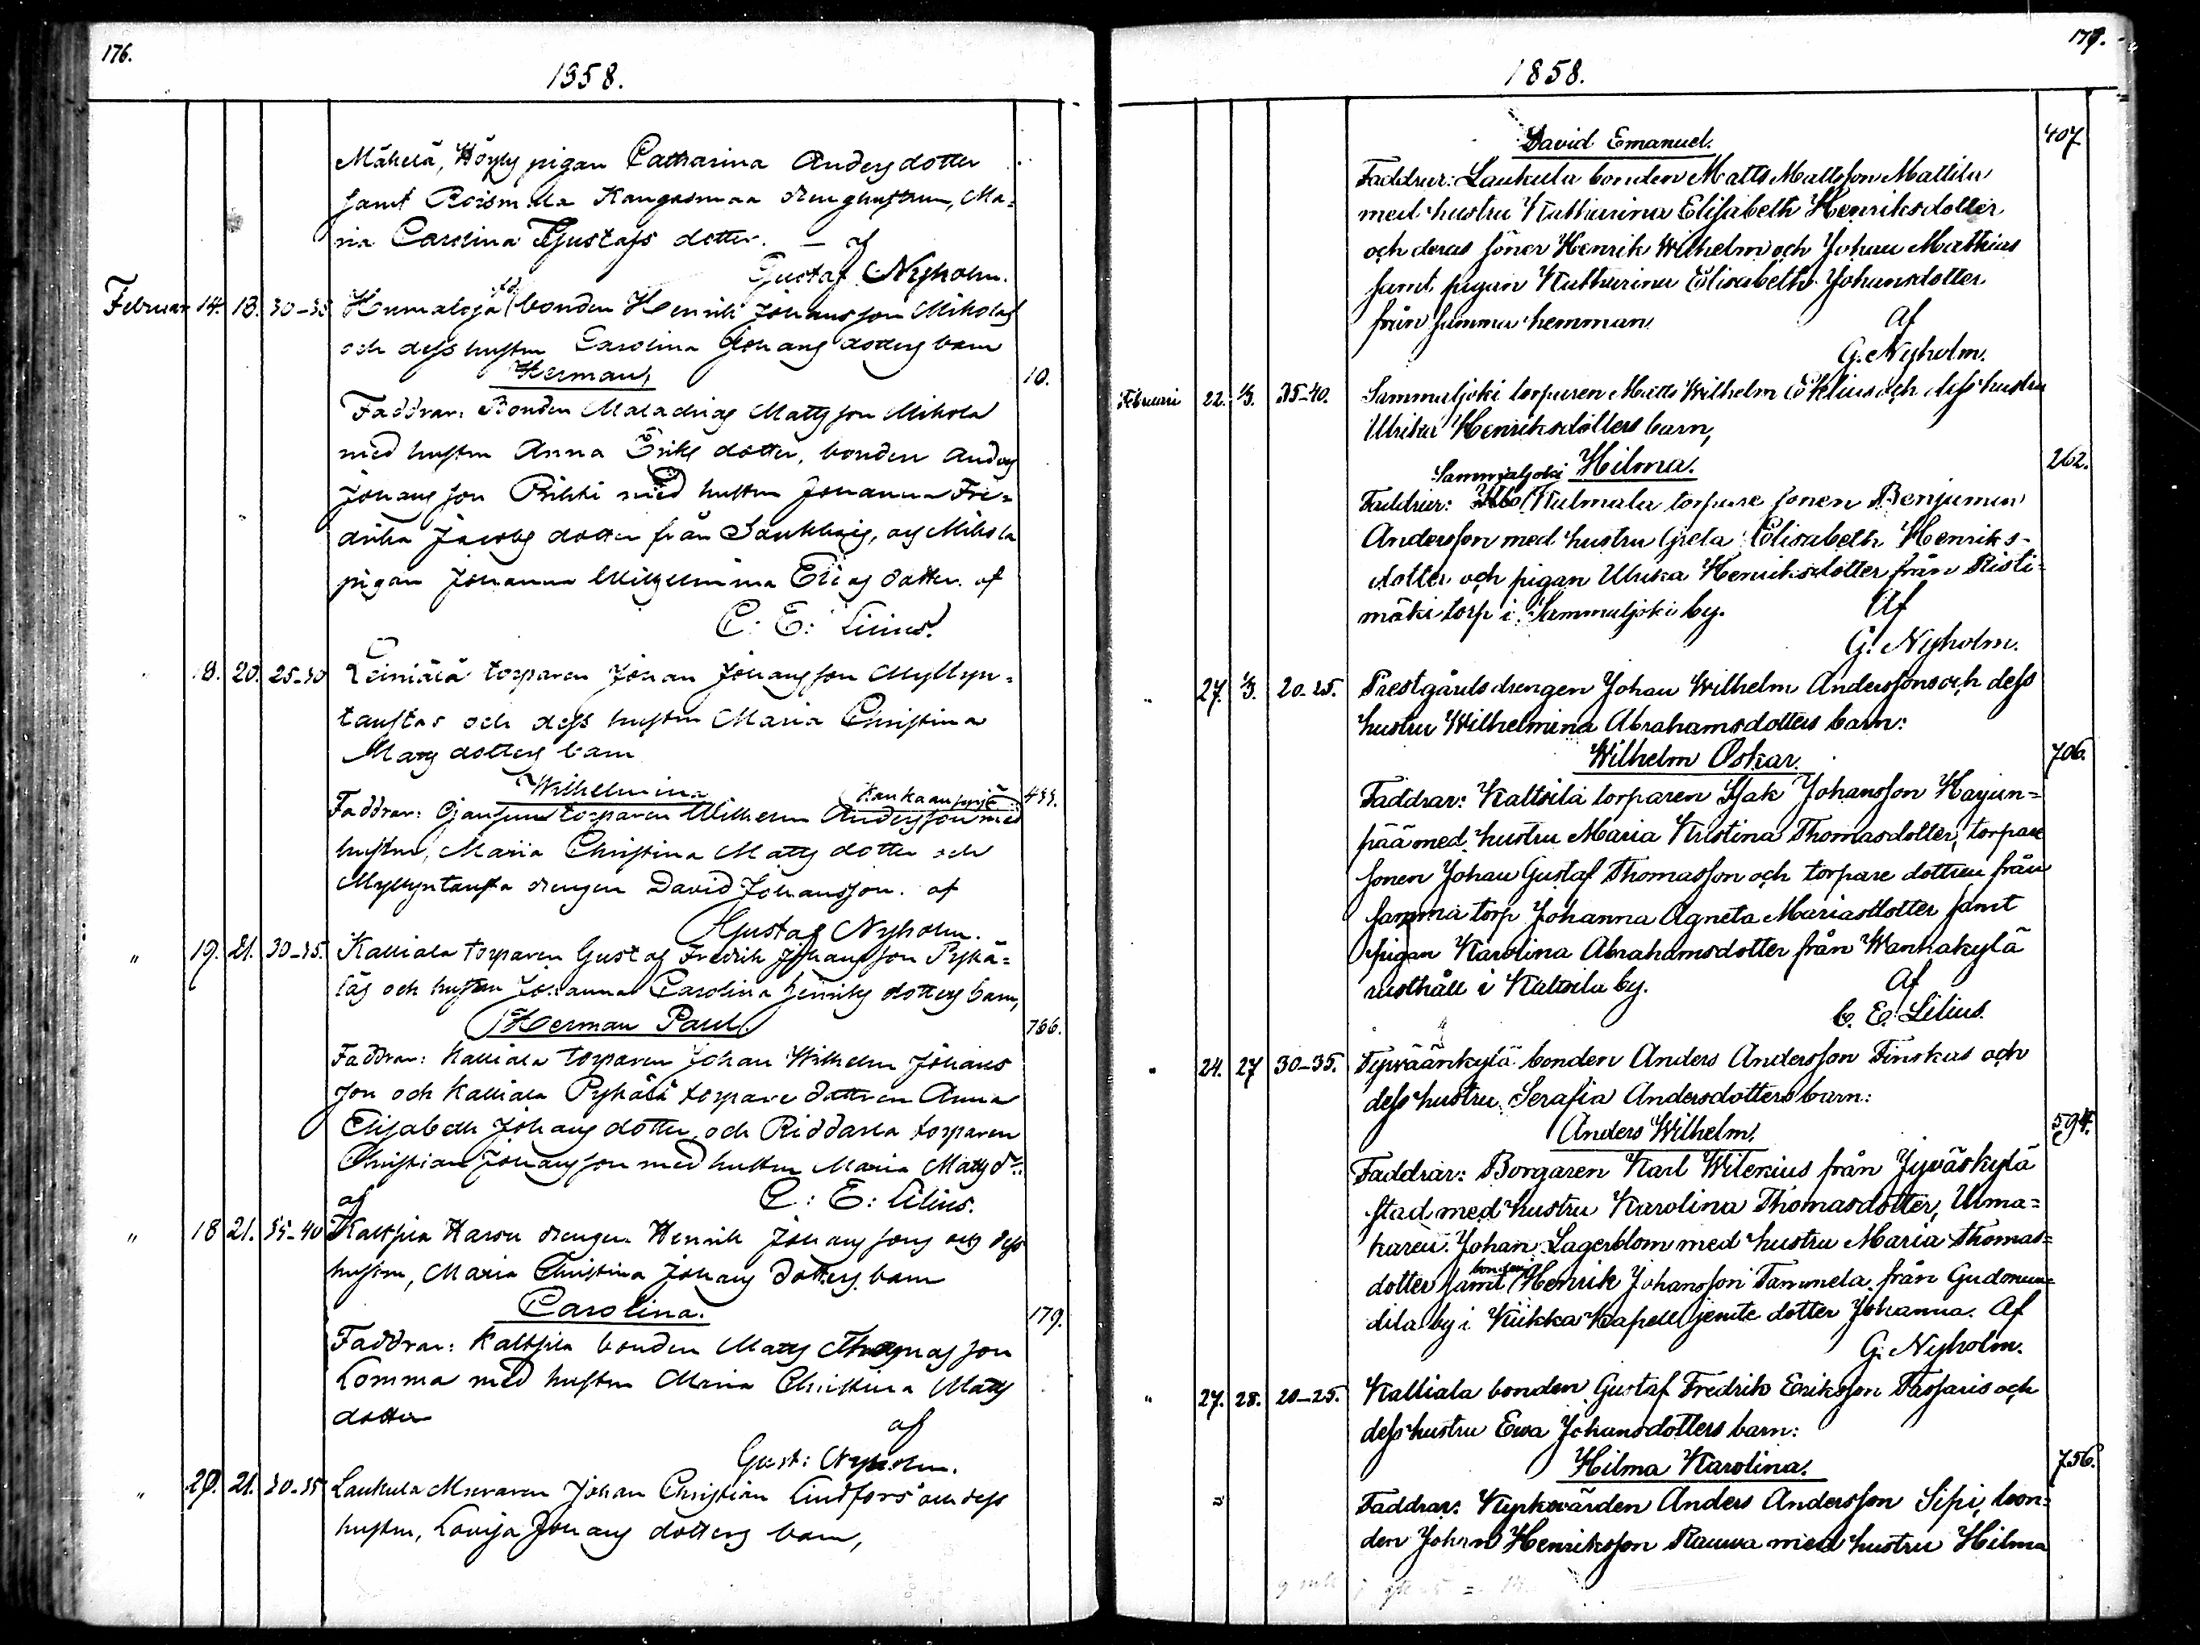 176.
1858.
Mäkelä, Höysy pigan Catharina Anders dotter
samt Roismala Kangasmaa drenghustrun, Ma-
ria Carolina Gustafs dotter. — af
Gustaf Nyholm.
Februar 14. 18. 30-35 bonden Henrik Johansson Mikolas
och dess hustru Carolina Johans dotters barn
Herman, 10.
Faddrar: Bonden Malachias Matts son Mikola
med hustru Anna Eriks dotter, bonden Anders
Johans son Prihti med hustru Johanna Fre-
drika Jacobs dotter från Soukko, och Mikola
pigan Johanna Wilhelmina Elias dotter. af
C: E: Lilius.
" 8. 20. 25-30 Leiniälä torparen Johan Johans son Myllyn-
taustas och dess hustru Maria Christina
Matts dotters barn
Wilhelmina
Faddrar: Ojansuu torparen Wilhelm Anders son med
hustru, Maria Christina Matts dotter och
Myllyntausta drengen David Johansson. af
Gustaf Nyholm.
" 19. 21. 30-35. Kalliala torparen Gustaf Fredrik Johans son Pyhä-
läs och hustru Johanna Carolina Henriks dotters barn,
Herman Paul. 766.
Faddrar: Kalliala torparen Johan Wilhelm Johans
son och Kalliala Pyhälä torpare dottren Anna
Elisabeth Johans dotter, och Riddarla torparen
Christian Johans son med hustru Maria Matts dr.
af C: E: Lilius.
" 18 21. 35-40 Kaltsila Harsu drengen Henrik Johans sons och dess
hustru, Maria Christina Johans dotters barn
Carolina. 179.
Faddrar: Kaltsila bonden Matts Thomas son
Lomma med hustru Maria Christina Matts
dotter af
Gust: Nyholm.
" 20. 21. 30-35 Laukula Muraren Johan Christian Lindfors och dess
hustru, Lovisa Johans dotters barn,
177.
1858.
David Emanuel. 407
Faddrar: Laukula bonden Matts Mattsson Mattila
med hustru Katharina Elisabeth Henriksdotter
och deras söner Henrik Wilhelm och Johan Mathias
samt pigan Katharina Elisabeth Johansdotter
från samma hemman. Af
G. Nyholm.
Februari 22. 1/3. 35-40. Sammaljoki torparen Matts Wilhelm Eklius och dess hustru
Ulrika Henriksdotters barn,
Hilma. 262.
Sammaljoki
Faddrar: Kulmala torpare sonen Benjamin
Andersson med hustru Greta Elisabeth Henriks-
dotter och pigan Ulrika Henriksdotter från Risti-
mäki torp i Sammaljoki by. Af
G. Nyholm.
" 27. 1/3. 20-25. Prestgårds drengen Johan Wilhelm Anderssons och dess
hustru Wilhelmina Abrahamsdotters barn:
Wilhelm Oskar. 706.
Faddrar: Kaltsila torparen Isak Johansson Hayun-
pää med hustru Maria Kristina Thomasdotter, torpare
sonen Johan Gustaf Thomasson och torpare dottren från
samma torp Johanna Agneta Mariasdotter samt
pigan Karolina Abrahamsdotter från Wanhakylä
rusthåll i Kaltsila by. Af
C. E. Lilius.
" 24. 27 30-35. Tyrväänkylä bonden Anders Andersson Finskas och
dess hustru Serafia Andersdotters barn:
Anders Wilhelm. 594.
Faddrar: Borgaren Karl Witenius från Jyväskylä
stad med hustru Karolina Thomasdotter, Urma-
karen Johan Lagerblom med hustru Maria Thomas-
bonden
dotter samt Henrik Johansson Tammela från Gudmun-
dila by i Kiikka Kapell jemte dotter Johanna. Af
G. Nyholm.
" 27. 28. 20-25. Kalliala bonden Gustaf Fredrik Eriksson Tassaris och
dess hustru Ewa Johansdotters barn:
Hilma Karolina. 756.
Faddrar: Kyrkovärden Anders Andersson Sipi, bon-
den Johan Henriksson Rauwa med hustru Hilma